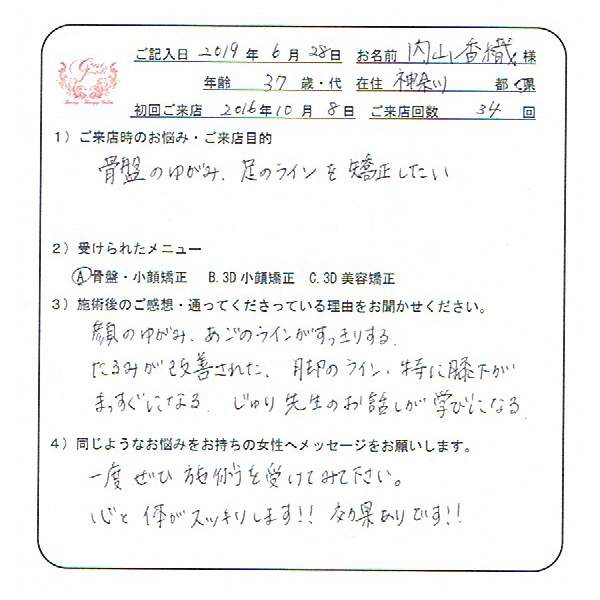 ご記入日 2019 年 6 月 28 日 お名前 内山香織 様
年齢 37 歳・代 在住 神奈川 都・県
初回ご来店 2016 年 10 月 8 日 ご来店回数 34 回
1）ご来店時のお悩み・ご来店目的
骨盤のゆがみ、足のラインを矯正したい
2）受けられたメニュー
A 骨盤・小顔矯正 B.3D 小顔矯正 C.3D 美容矯正
3）施術後のご感想・通ってくださっている理由をお聞かせください。
顔のゆがみ、あごのラインがすっきりする、
たるみが改善された、脚のライン、特に膝下が
まっすぐになる、じゅり先生のお話しが学びになる
4）同じようなお悩みをお持ちの女性へメッセージをお願いします。
一度ぜひ施術を受けてみて下さい。
心と体がスッキリします!! 効果ありです!!